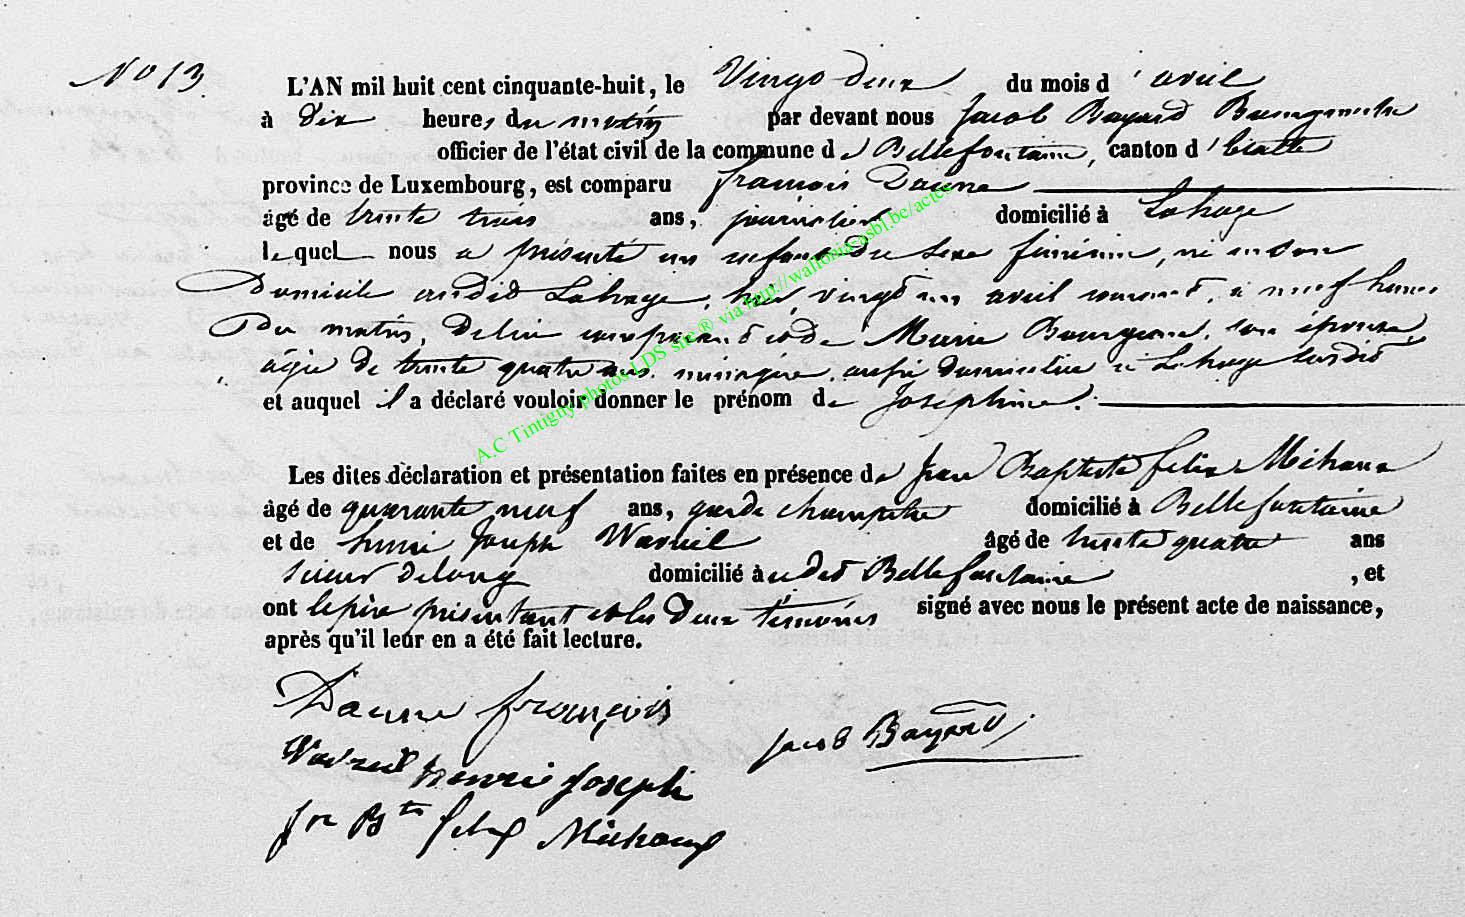 No 13.
L'AN mil huit cent cinquante-huit, le Vingt deux du mois d'avril
à Dix heures du matin par devant nous Jacob Bayard Bourgmestre
officier de l'état civil de la commune de Bellefontaine, canton d'Etalle
province de Luxembourg, est comparu françois Daune
âgé de trente trois ans, journalier domicilié à Lahage
lequel nous a présenté un enfant du sexe féminin, né en son
Domicile audit Lahage, hier vingt un avril courant, à neuf heures
du matin, De lui comparant et de Marie Bourguignon, son épouse
âgée de trente quatre ans, ménagère, aussi domiciliée à Lahage susdit
et auquel il a déclaré vouloir donner le prénom de Joséphine.
Les dites déclaration et présentation faites en présence de Jean Baptiste felix Michaux
âgé de quarante neuf ans, garde champêtre domicilié à Bellefontaine
et de henri Joseph Wavreil âgé de trente quatre ans
scieur de long domicilié à udit Bellefontaine, et
ont le père présentant et les deux témoins signé avec nous le présent acte de naissance,
après qu'il leur en a été fait lecture.
Daune françois
Jacob Bayard
Wavreil henri Joseph
Jn Bte felix Michaux
A.C Tintigny photos LDS site ® via http://wallonia-asbl.be/actes